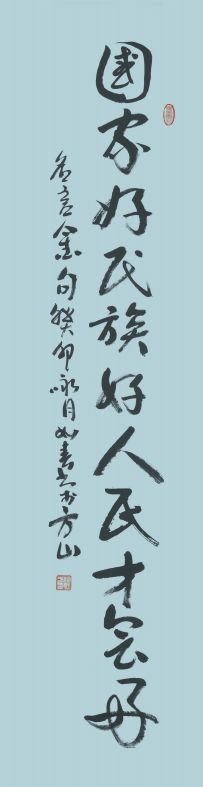 國家好民族好人民才会好
名言金句癸卯咏月如书于方山